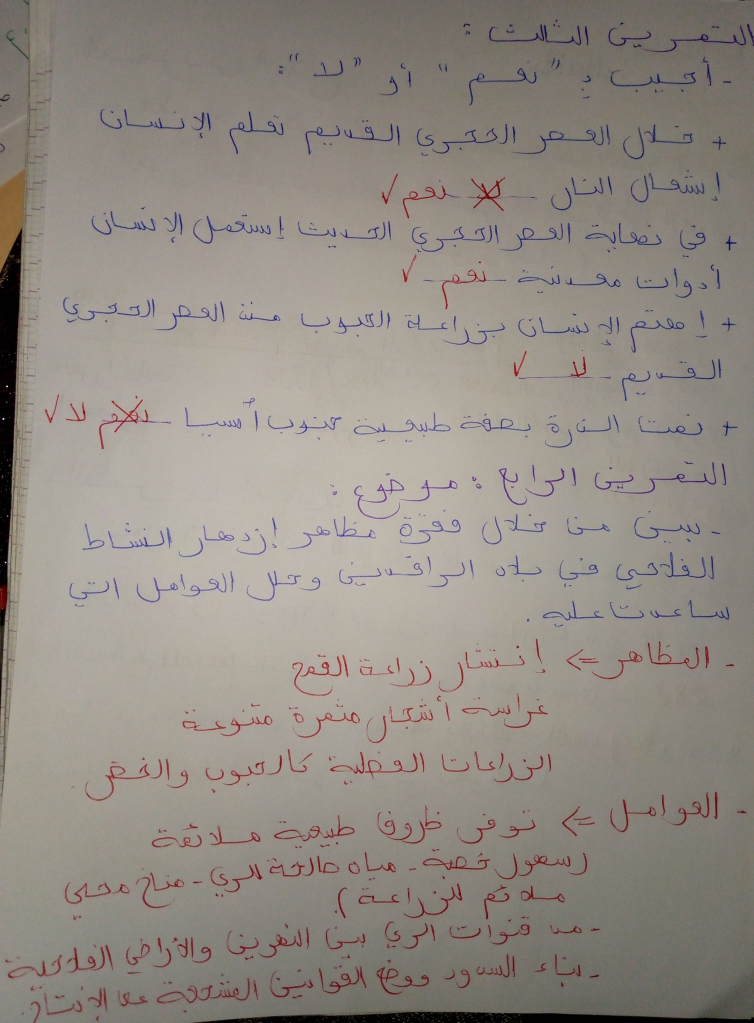 التمرين الثالث :
- أجيب بـ "نعم" أو "لا":
+ خلال العصر الحجري القديم تعلم الإنسان
إشعال النار لا نعم ✓
+ في نهاية العصر الحجري الحديث إستعمل الإنسان
أدوات معدنية نعم ✓
+ إهتم الإنسان بزراعة الحبوب منذ العصر الحجري
القديم لا ✓
+ نمت الذرة بصفة طبيعية جنوب أسيا نعم لا ✓
التمرين الرابع : موضوع :
- بين من خلال فقرة مظاهر إزدهار النشاط
الفلاحي في بلاد الرافدين وحلل العوامل التي
ساعدت عليه .
- المظاهر => إنتشار زراعة القمح
غراسة أشجار مثمرة متنوعة
الزراعات الفصلية كالحبوب والخضر.
- العوامل => توفر ظروف طبيعية ملائمة
(سهول خصبة - مياه صالحة للري - مناخ محلي
ملائم للزراعة).
- مد قنوات الري بين النهرين والأراضي الفلاحية
- بناء السدود ووضع القوانين المشجعة على الإنتاج.